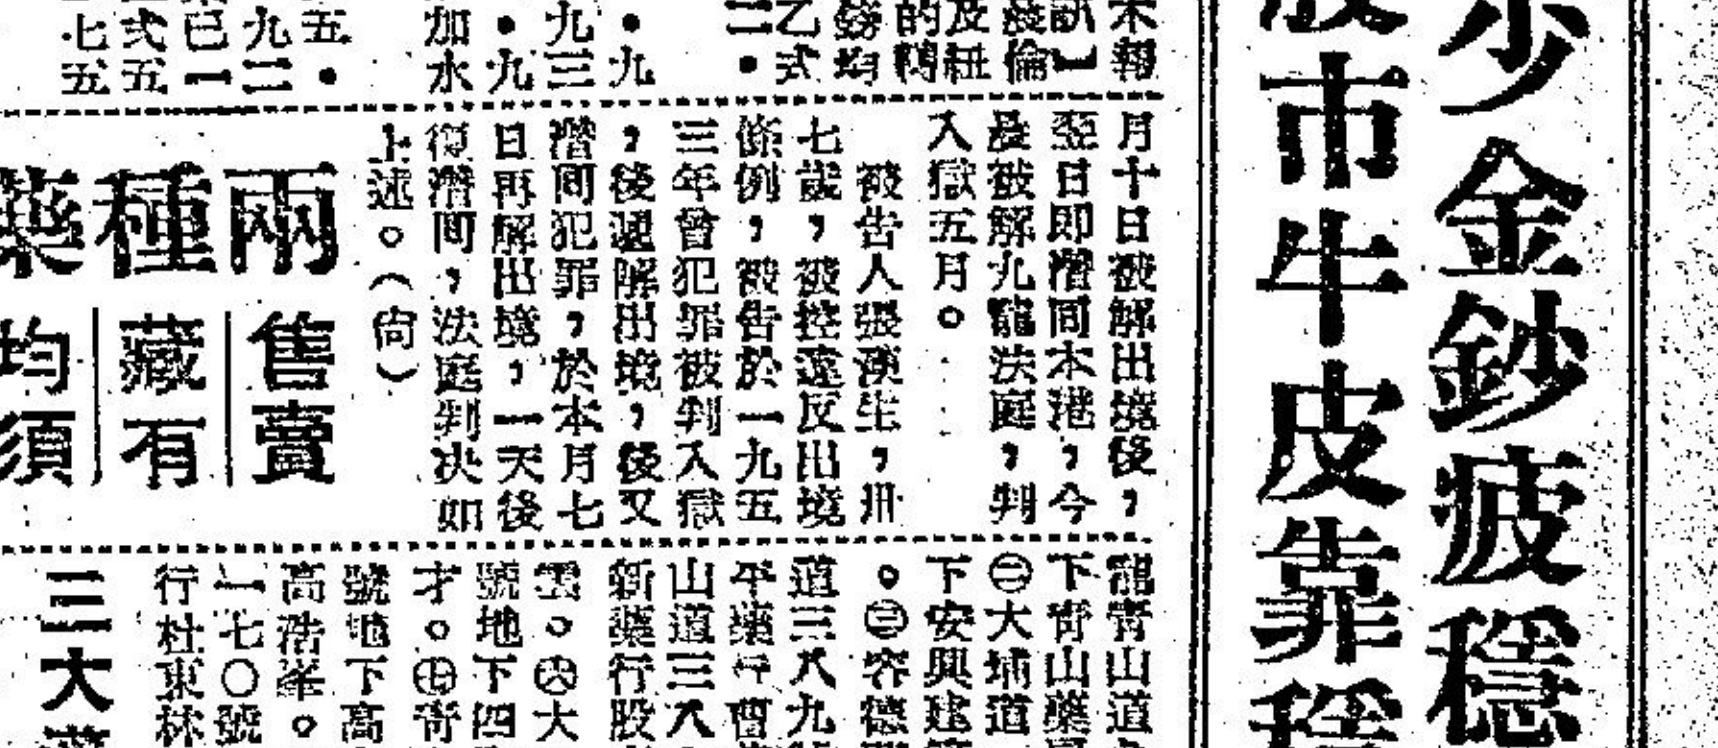 少金鈔疲穩
股市牛皮靠穩
本報
訊】
晨倫
及紐
的轉
務均
乙式
二・
・九
九三
・九
加水
五・
九二
已一
式五
七五
月十日被解出境後，
翌日即潛回本港，今
晨被解九龍法庭，判
入獄五月。
被告人張漢生，卅
七歲，被控違反出境
條例，被告於一九五
三年曾犯罪被判入獄
，後遞解出境，後又
潛回犯罪，於本月七
日再解出境，一天後
復潛回，法庭判決如
上述。（尙）
兩種藥
售賣
藏有
均須
龍青山道
下青山藥
㊁大埔道
下安興建
。㊂容德
道三八九
平藥行曹
山道三八
新藥行股
雲。㊅大
號地下四
才。㊆靑
號地下高
高浩峯。
一七〇號
行杜東林
三大